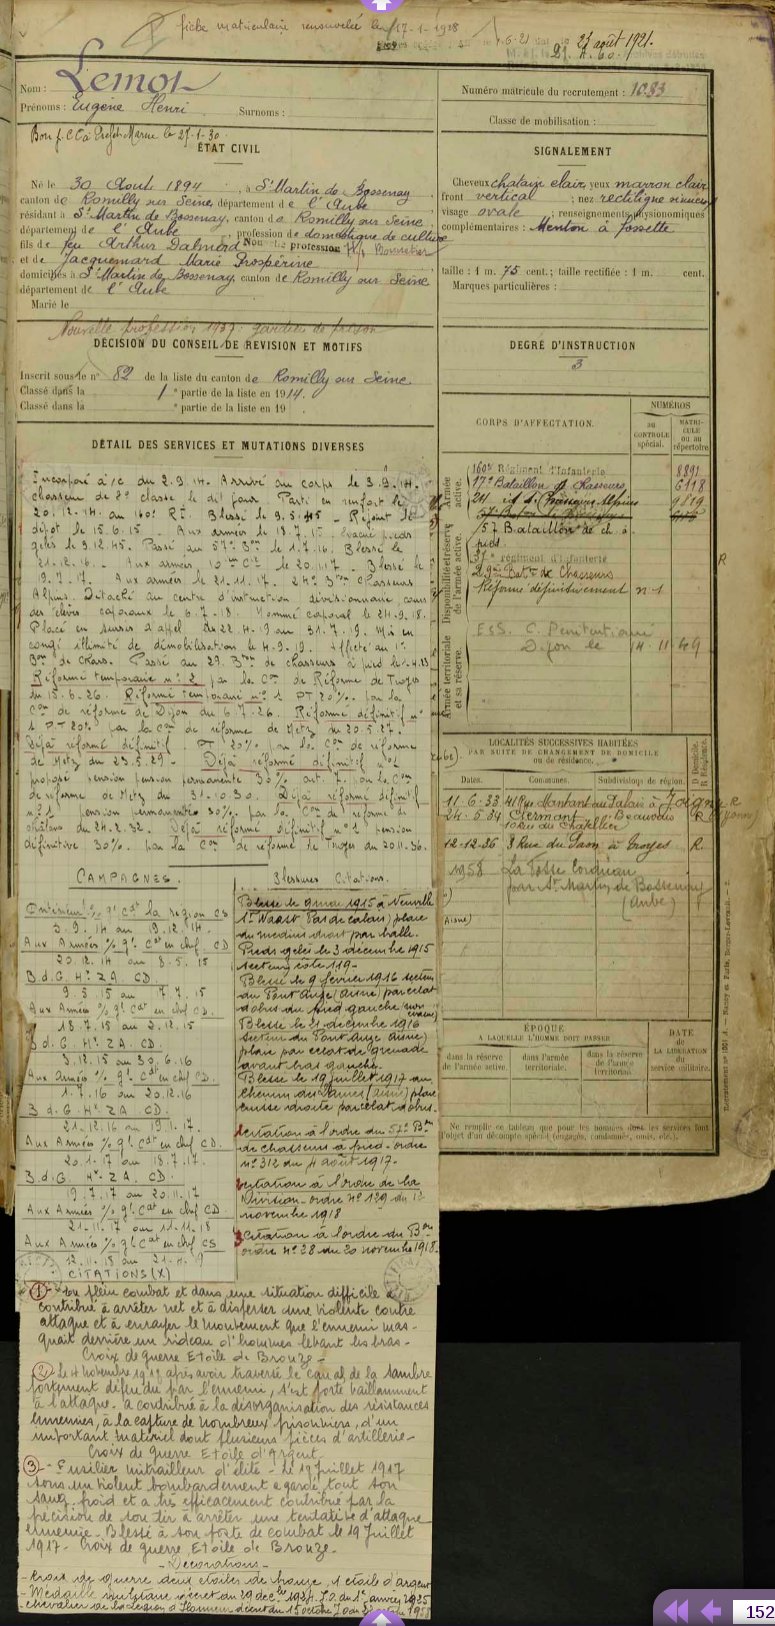 fiche matriculaire renouvelée le 17-1-1928
23 août 1921.
Nom : Lemot
Prénoms : Eugène Henri Surnoms :
Numéro matricule du recrutement : 1083
Classe de mobilisation :
ÉTAT CIVIL
Né le 30 Août 1894, à St Martin de Bossenay,
canton de Romilly sur Seine, département de l'Aube,
résidant à St Martin de Bossenay, canton de Romilly sur Seine,
département de l'Aube, profession de domestique de culture
fils de feu Arthur
et de Jacquemard Marie Prospérine
domiciliés à St Martin de Bossenay, canton de Romilly sur Seine
département de l'Aube
Marié le
Nouvelle profession 1937 : gardien de prison
SIGNALEMENT
Cheveux chatain clair, yeux marron clair
front vertical ; nez rectiligne
visage ovale ; renseignements physionomiques
complémentaires : Menton à fossette
taille : 1 m. 75 cent. ; taille rectifiée : 1 m. cent.
Marques particulières :
DÉCISION DU CONSEIL DE REVISION ET MOTIFS
Inscrit sous le n° 82 de la liste du canton de Romilly sur Seine
Classé dans la 1e partie de la liste en 1914.
Classé dans la e partie de la liste en 19 .
DEGRÉ D'INSTRUCTION
3
CORPS D'AFFECTATION.
NUMÉROS
au CONTROLE spécial.
MATRICULE ou au répertoire
Armée active.
160e Régiment d'Infanterie 8891
17e Bataillon de Chasseurs 6118
57 Bataillon de ch. à pied
Disponibilité et réserve de l'armée active.
régiment d'infanterie
29e Batn de Chasseurs
Réformé définitivement n° 1
Armée territoriale et sa réserve.
Dijon le 14-11-49
DÉTAIL DES SERVICES ET MUTATIONS DIVERSES
Incorporé à/c du 2.9.14. Arrivé au corps le 3.9.14.
chasseur de 2e classe le dit jour. Parti en renfort le
20.12.14. au 160e RI. Blessé le 9.5.15 - Rejoint le
dépôt le 15.6.15 - Aux armées le 18.7.15 évacué pieds
gelés le 3.12.15. Passé au 57e Bon le 1.7.16. Blessé le
21.12.16. - Aux armées 10me Cie le 20.1.17 - Blessé le
19.7.17. Aux armées le 21.11.17. 24e Bon Chasseurs
Alpins. Détaché au centre d'instruction divisionnaire cours
des élèves caporaux le 6.7.18. Nommé caporal le 24.9.18.
Placé en sursis d'appel du 22.4.19 au 31.7.19. Mis en
congé illimité de démobilisation le 4.9.19. Affecté au 1er
Bon de Chars. Passé au 29 Bon de chasseurs à pied le 1.4.23
Réformé temporaire n° 2 par la Con de Réforme de Troyes
du 15.6.26. Réformé temporaire n° 1 PT 20% par la
Con de réforme de Dijon du 6.7.26. Réformé définitif n°
1 PT 20% par la Con de réforme de Metz du 20.5.27.
Déjà réformé définitif PT 20% par la Con de réforme
de Metz du 23.5.29 - Déjà réformé définitif n° 1
proposé pension permanente 30% art. 7. par la Con
de réforme de Metz du 31-10-30. Déjà réformé définitif
n° 1 pension permanente 30% par la Con de réforme de
châlons du 24.2.32. Déjà réformé définitif n° 1 pension
définitive 30% par la Con de réforme de Troyes du 20.11.36.
LOCALITÉS SUCCESSIVES HABITÉES
PAR SUITE DE CHANGEMENT DE DOMICILE
ou de résidence.
Dates. Communes. Subdivisions de région. D Domicile. R Résidence.
11-6-33 41 Rue Montant au Palais à Joigny R
24-5-34 Clermont Beauvais R
10 Rue du Chatellier
12-12-36 8 Rue du Paon à Troyes R.
1958 La Fosse Cordouan
par St Martin de Bossenay
(Aube)
CAMPAGNES.
Intérieur % gt Cat la région CS
3.9.14 au 19.12.14.
Aux Armées % gt Cat en chef CD
20.12.14 au 8.5.15
B.d.G. Hre ZA CD.
9.5.15 au 17.7.15
Aux Armées % gt Cat en chef CD.
18.7.15 au 2.12.15
B.d.G. Hre ZA CD.
3.12.15 au 30.6.16
Aux Armées % gt Cat en chef CD.
1.7.16 au 20.12.16
B.d.G. Hre ZA CD.
21.12.16 au 19.1.17.
Aux Armées % gt Cat en chef CD.
20.1.17 au 18.7.17.
B.d.G. Hre ZA CD.
19.7.17 au 20.11.17
Aux Armées % gt Cat en chef CD
21.11.17 au 11.11.18
Aux Armées % gt Cat en chef CS
12.11.18 au 21.4.19
Blessures Citations.
Blessé le 9 mai 1915 à Neuville
St Waast Pas de Calais) plaie
du medius droit par balle.
Pieds gelés le 3 décembre 1915
secteur côte 119-
Blessé le 9 février 1916 secteur
du Pont Ange (Aisne) par éclat
d'obus du pied gauche (non évacué)
Blessé le 21 décembre 1916
secteur du Pont Ange Aisne)
plaie par éclat de grenade
avant bras gauche.
Blessé le 19 juillet 1917 au
Chemin des Dames (Aisne) plaie
cuisse droite par éclat d'obus.
1 citation à l'ordre du 57e Bon
de chasseurs à pied - ordre
n° 312 du 4 août 1917-
2 citation à l'ordre de la
Division - ordre n° 129 du 1er
novembre 1918
3 citation à l'ordre du Bon
ordre n° 28 du 20 novembre 1918-
CITATIONS (X)
1 - En plein combat et dans une situation difficile a
contribué à arrêter net et à disperser une violente contre
attaque et à enrayer le mouvement que l'ennemi mas-
quait derrière un rideau d'hommes levant les bras-
Croix de guerre Etoile de Bronze-
2 Le 4 novembre 1918 après avoir traversé le canal de la Sambre
fortement défendu par l'ennemi, s'est porté vaillamment
à l'attaque. a contribué à la désorganisation des résistances
ennemies, à la capture de nombreux prisonniers, d'un
important matériel dont plusieurs pièces d'artillerie-
Croix de guerre Etoile d'Argent
3 - Fusilier mitrailleur d'élite - Le 19 juillet 1917
sous un violent bombardement a gardé tout son
sang froid et a très efficacement contribué par la
précision de son tir à arrêter une tentative d'attaque
ennemie. Blessé à son poste de combat le 19 Juillet
1917- Croix de guerre, Etoile de Bronze-
- Décorations -
- Croix de guerre deux étoiles de bronze, 1 étoile d'argent
- Médaille militaire décret du 29 déc. 1924. J.O. du 1er janvier 1925
- Chevalier de la Légion d'Honneur décret du 15 octobre J.O. du octobre 1958
ÉPOQUE
A LAQUELLE L'HOMME DOIT PASSER
dans la réserve de l'armée active.
dans l'armée territoriale.
dans la réserve de l'armée territoriale.
DATE de LA LIBÉRATION du service militaire.
Ne remplir ce tableau que pour les hommes dont les services font
l'objet d'un décompte spécial (engagés, condamnés, omis, etc.).
152